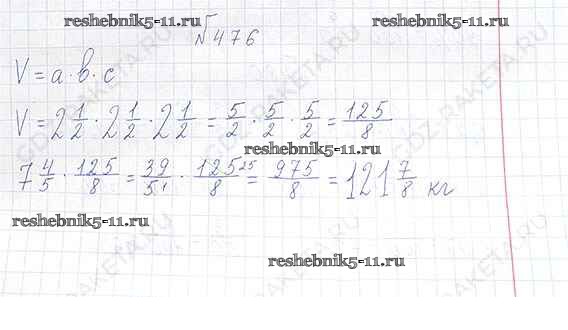 reshebnik5-11.ru reshebnik5-11.ru
№476
V = a · b · c
V = 2 1/2 · 2 1/2 · 2 1/2 = 5/2 · 5/2 · 5/2 = 125/8
reshebnik5-11.ru
7 4/5 · 125/8 = 39/5 1 · 125 25/8 = 975/8 = 121 7/8 кг
reshebnik5-11.ru
reshebnik5-11.ru
GDZ-RAKETA.RU